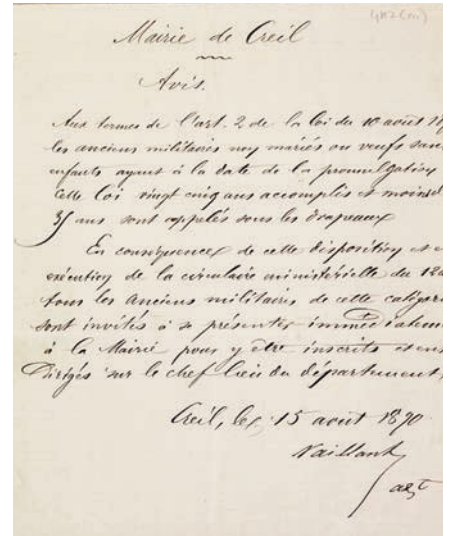 Mairie de Creil
Avis.
Aux termes de l'art. 2 de la loi du 10 août 18
les anciens militaires non mariés ou veufs sans
enfants ayant à la date de la promulgation
cette loi vingt cinq ans accomplis et moins d
35 ans sont appelés sous les drapeaux
En conséquence de cette disposition et e
exécution de la circulaire ministérielle du 12 a
tous les anciens militaires de cette catégor
sont invités à se présenter immédiateme
à la Mairie pour y être inscrits et ens
Dirigés sur le chef lieu du département.
Creil, le 15 août 1870
Vaillant
adt